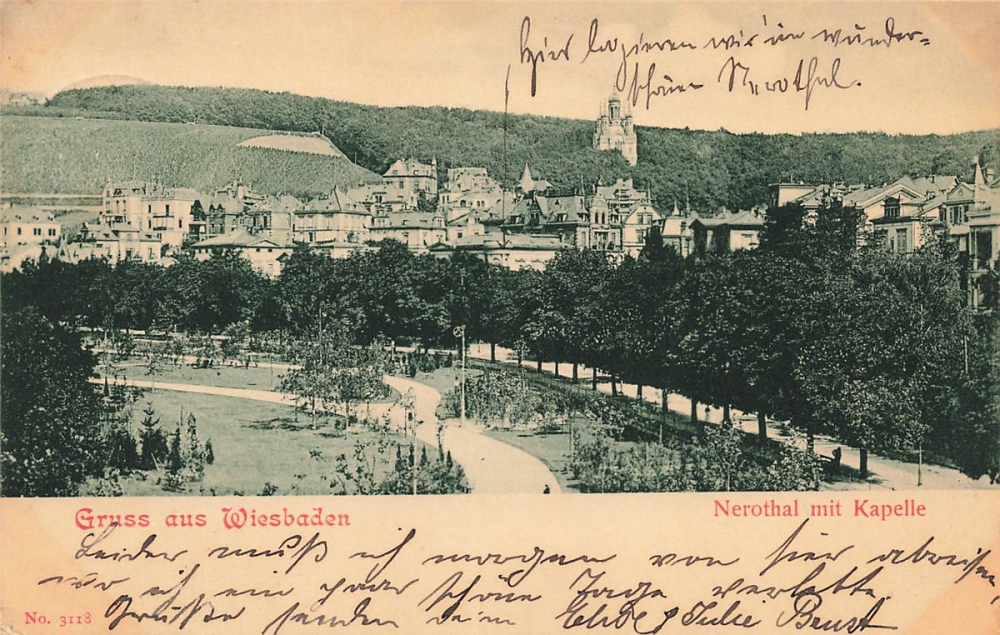 Hier logieren wir im wunder=
schönen Nerothal.
Gruss aus Wiesbaden
Nerothal mit Kapelle
Leider muß ich morgen von hier abreisen,
wo ich ein paar schöne Tage verlebte.
Grüße senden dein & Julie
No. 3118